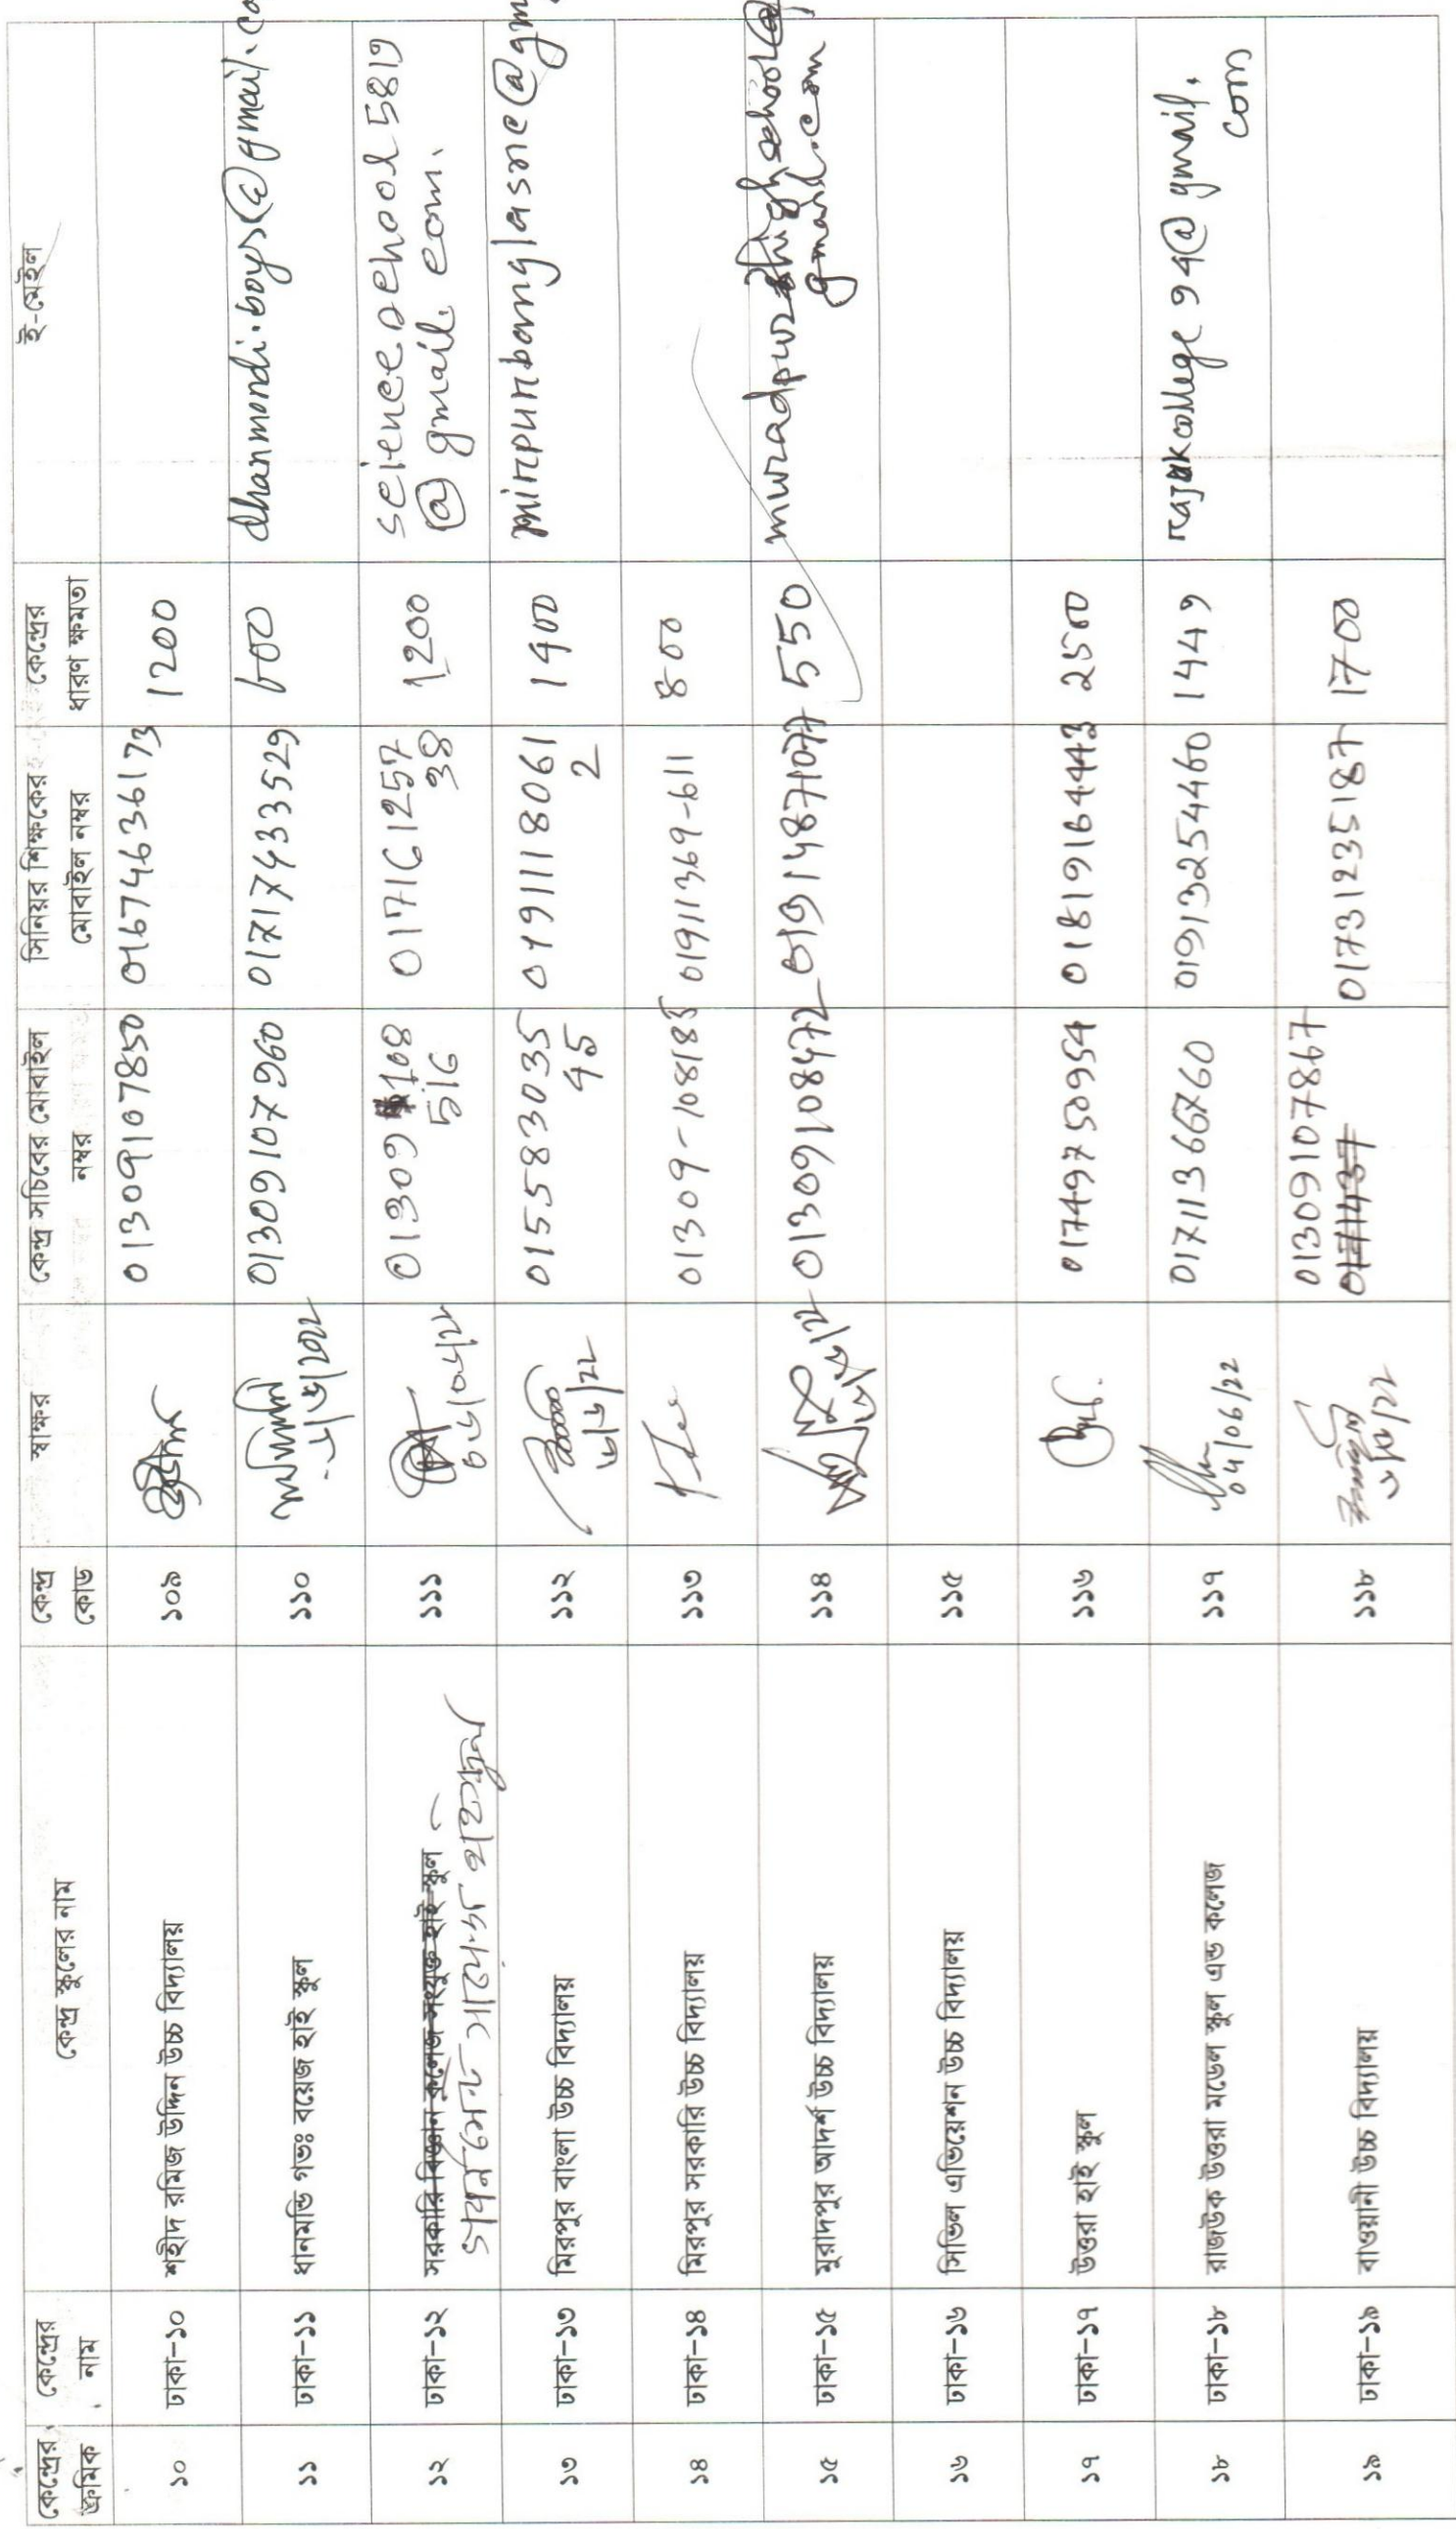 কেন্দ্রের ক্রমিক কেন্দ্রের নাম কেন্দ্র স্কুলের নাম কেন্দ্র কোড স্বাক্ষর কেন্দ্র সচিবের মোবাইল নম্বর সিনিয়র শিক্ষকের মোবাইল নম্বর কেন্দ্রের ধারণ ক্ষমতা ই-মেইল
১০ ঢাকা-১০ শহীদ রমিজ উদ্দিন উচ্চ বিদ্যালয় ১০৯ 01309107850 01674636173 1200
১১ ঢাকা-১১ ধানমন্ডি গভঃ বয়েজ হাই স্কুল ১১০ 01309107960 01717433529 ৮00 dhanmondi.boys@gmail.co
১২ ঢাকা-১২ সরকারি বিজ্ঞান কলেজ সংযুক্ত হাই স্কুল ১১১ ০৬/০৬/২২ 01309108 017161257 1200 scienceschool5819
গভর্নমেন্ট সায়েন্স হাইস্কুল 516 38 @gmail.com.
১৩ ঢাকা-১৩ মিরপুর বাংলা উচ্চ বিদ্যালয় ১১২ ৬/৬/২২ 015583035 0191118061 1900 mirpurbanglasne@gm
45 2
১৪ ঢাকা-১৪ মিরপুর সরকারি উচ্চ বিদ্যালয় ১১৩ 01309-108185 01911369-611 800
১৫ ঢাকা-১৫ মুরাদপুর আদর্শ উচ্চ বিদ্যালয় ১১৪ 01309108472 550 muradpurhighschool@
gmail.com
১৬ ঢাকা-১৬ সিভিল এভিয়েশন উচ্চ বিদ্যালয় ১১৫
১৭ ঢাকা-১৭ উত্তরা হাই স্কুল ১১৬ 01749750954 01819164443 2500
১৮ ঢাকা-১৮ রাজউক উত্তরা মডেল স্কুল এন্ড কলেজ ১১৭ 04/06/22 01711366760 01913254460 1449 rajukcollege94@gmail.
com
১৯ ঢাকা-১৯ বাওয়ানী উচ্চ বিদ্যালয় ১১৮ ৬/৬/২২ 01309107867 01731235187 1700